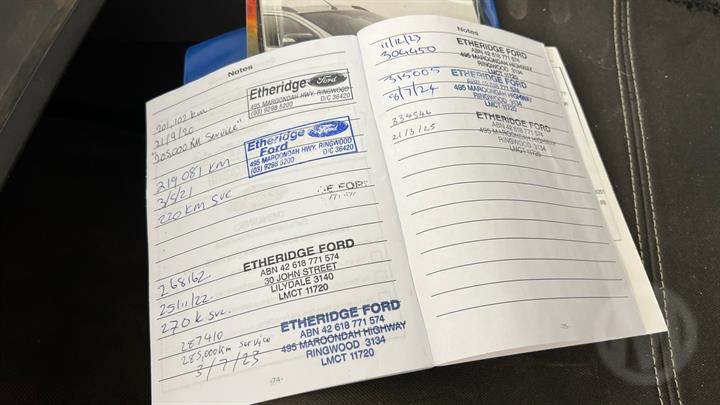 Notes
201,102 km
21/9/20
"205000 KM Service"
Etheridge Ford
495 MAROONDAH HWY, RINGWOOD
(03) 9298 5200 D/C 36420
219 081 KM
3/5/21
220 KM SVC
Etheridge Ford
Ford
495 MAROONDAH HWY, RINGWOOD
(03) 9298 5200 D/C 36420
GE FORD
268162
25/11/22
270 K SVC.
ETHERIDGE FORD
ABN 42 618 771 574
30 JOHN STREET
LILYDALE 3140
LMCT 11720
287410
285,000km service
3/7/23
ETHERIDGE FORD
ABN 42 618 771 574
495 MAROONDAH HIGHWAY
RINGWOOD 3134
LMCT 11720
-74-
Notes
11/12/23
304450
ETHERIDGE FORD
ABN 42 618 771 574
495 MAROONDAH HIGHWAY
RINGWOOD 3134
LMCT 11720
315005
8/7/24
ETHERIDGE FORD
ABN 42 618 771 574
495 MAROONDAH HIGHWAY
RINGWOOD 3134
LMCT 11720
334546
21/3/25
ETHERIDGE FORD
ABN 42 618 771 574
495 MAROONDAH HIGHWAY
RINGWOOD 3134
LMCT 11720
-75-